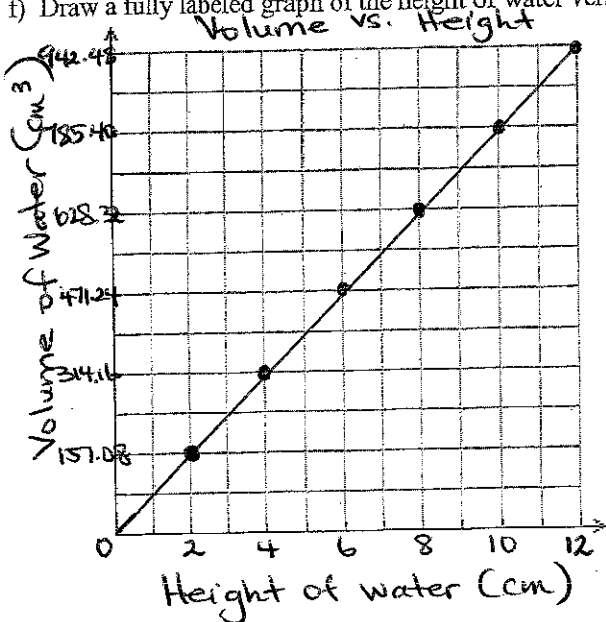 f) Draw a fully labeled graph of the height of water
Volume vs. Height
Volume of Water (cm³)
942.48
785.40
628.32
471.24
314.16
157.08
0 2 4 6 8 10 12
Height of water (cm)